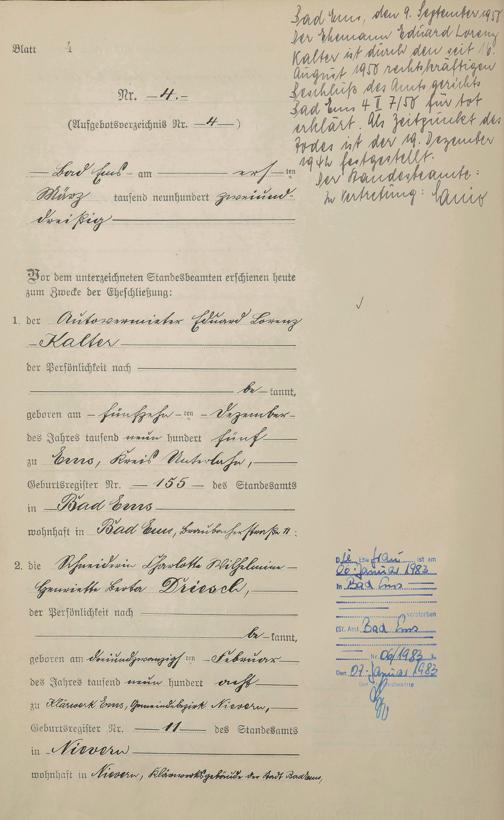 Blatt 4
Nr. 4.-
(Aufgebotsverzeichnis Nr. 4)
Bad Ems am ersten
März tausend neunhundert zweiund-
dreißig
Vor dem unterzeichneten Standesbeamten erschienen heute
zum Zwecke der Eheschließung:
1. der Autovermieter Eduard Lorenz
Kalter
der Persönlichkeit nach
be kannt,
geboren am fünfzehn ten Dezember
des Jahres tausend neun hundert fünf
zu Ems, Kreis Unterlahn,
Geburtsregister Nr. 155 des Standesamts
in Bad Ems
wohnhaft in Bad Ems, Braubacherstraße 11:
2. die Schneiderin Charlotte Wilhelmine
Henriette Berta Driesch,
der Persönlichkeit nach
be kannt,
geboren am dreiundzwanzigsten Februar
des Jahres tausend neun hundert acht
zu Klärwerk Ems, Gemeindebezirk Nievern,
Geburtsregister Nr. 11 des Standesamts
in Nievern
wohnhaft in Nievern, Klärwerksgebäude der Stadt Bad Ems,
Bad Ems, den 9. September 1950
Der Ehemann Eduard Lorenz
Kalter ist durch den seit
August 1950 rechtskräftigen
Beschluß des Amtsgerichts
Bad Ems 4 II 7/50 für tot
erklärt. Als Zeitpunkt des
Todes ist der 19. Dezember
1942 festgestellt.
Der Standesbeamte:
In Vertretung:
Die Ehefrau ist am
06. Januar 1983
in Bad Ems
verstorben
Bad Ems
Nr. 06/1983
07. Januar 1983